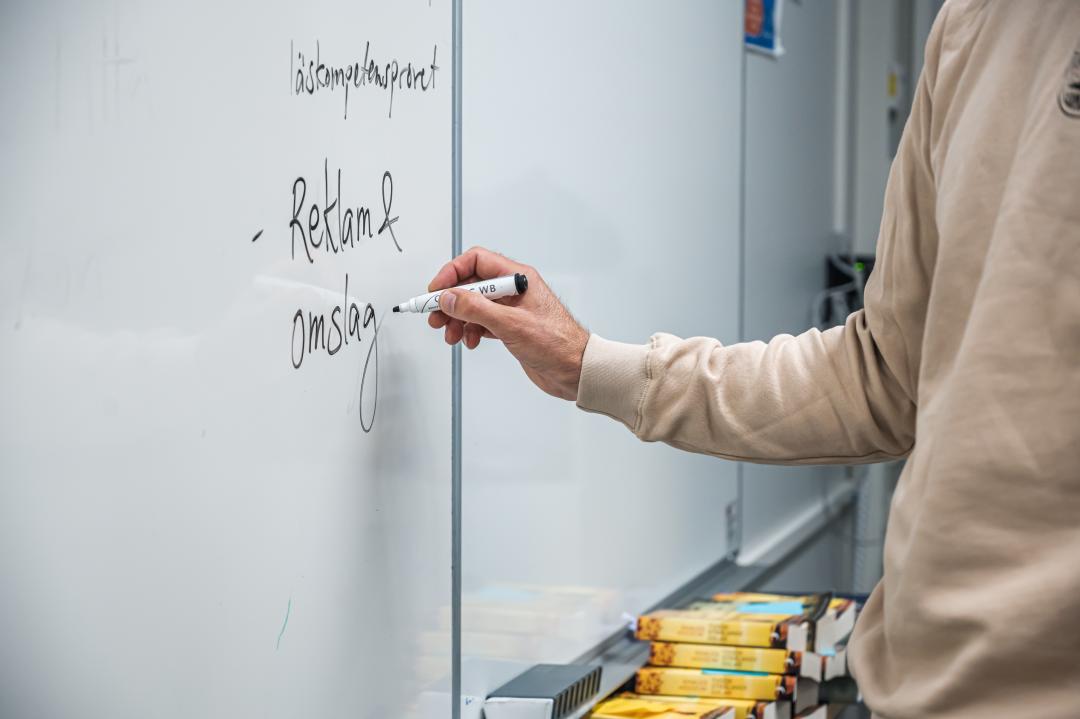 läskompetensprovet
- Reklam &
omslag
WB